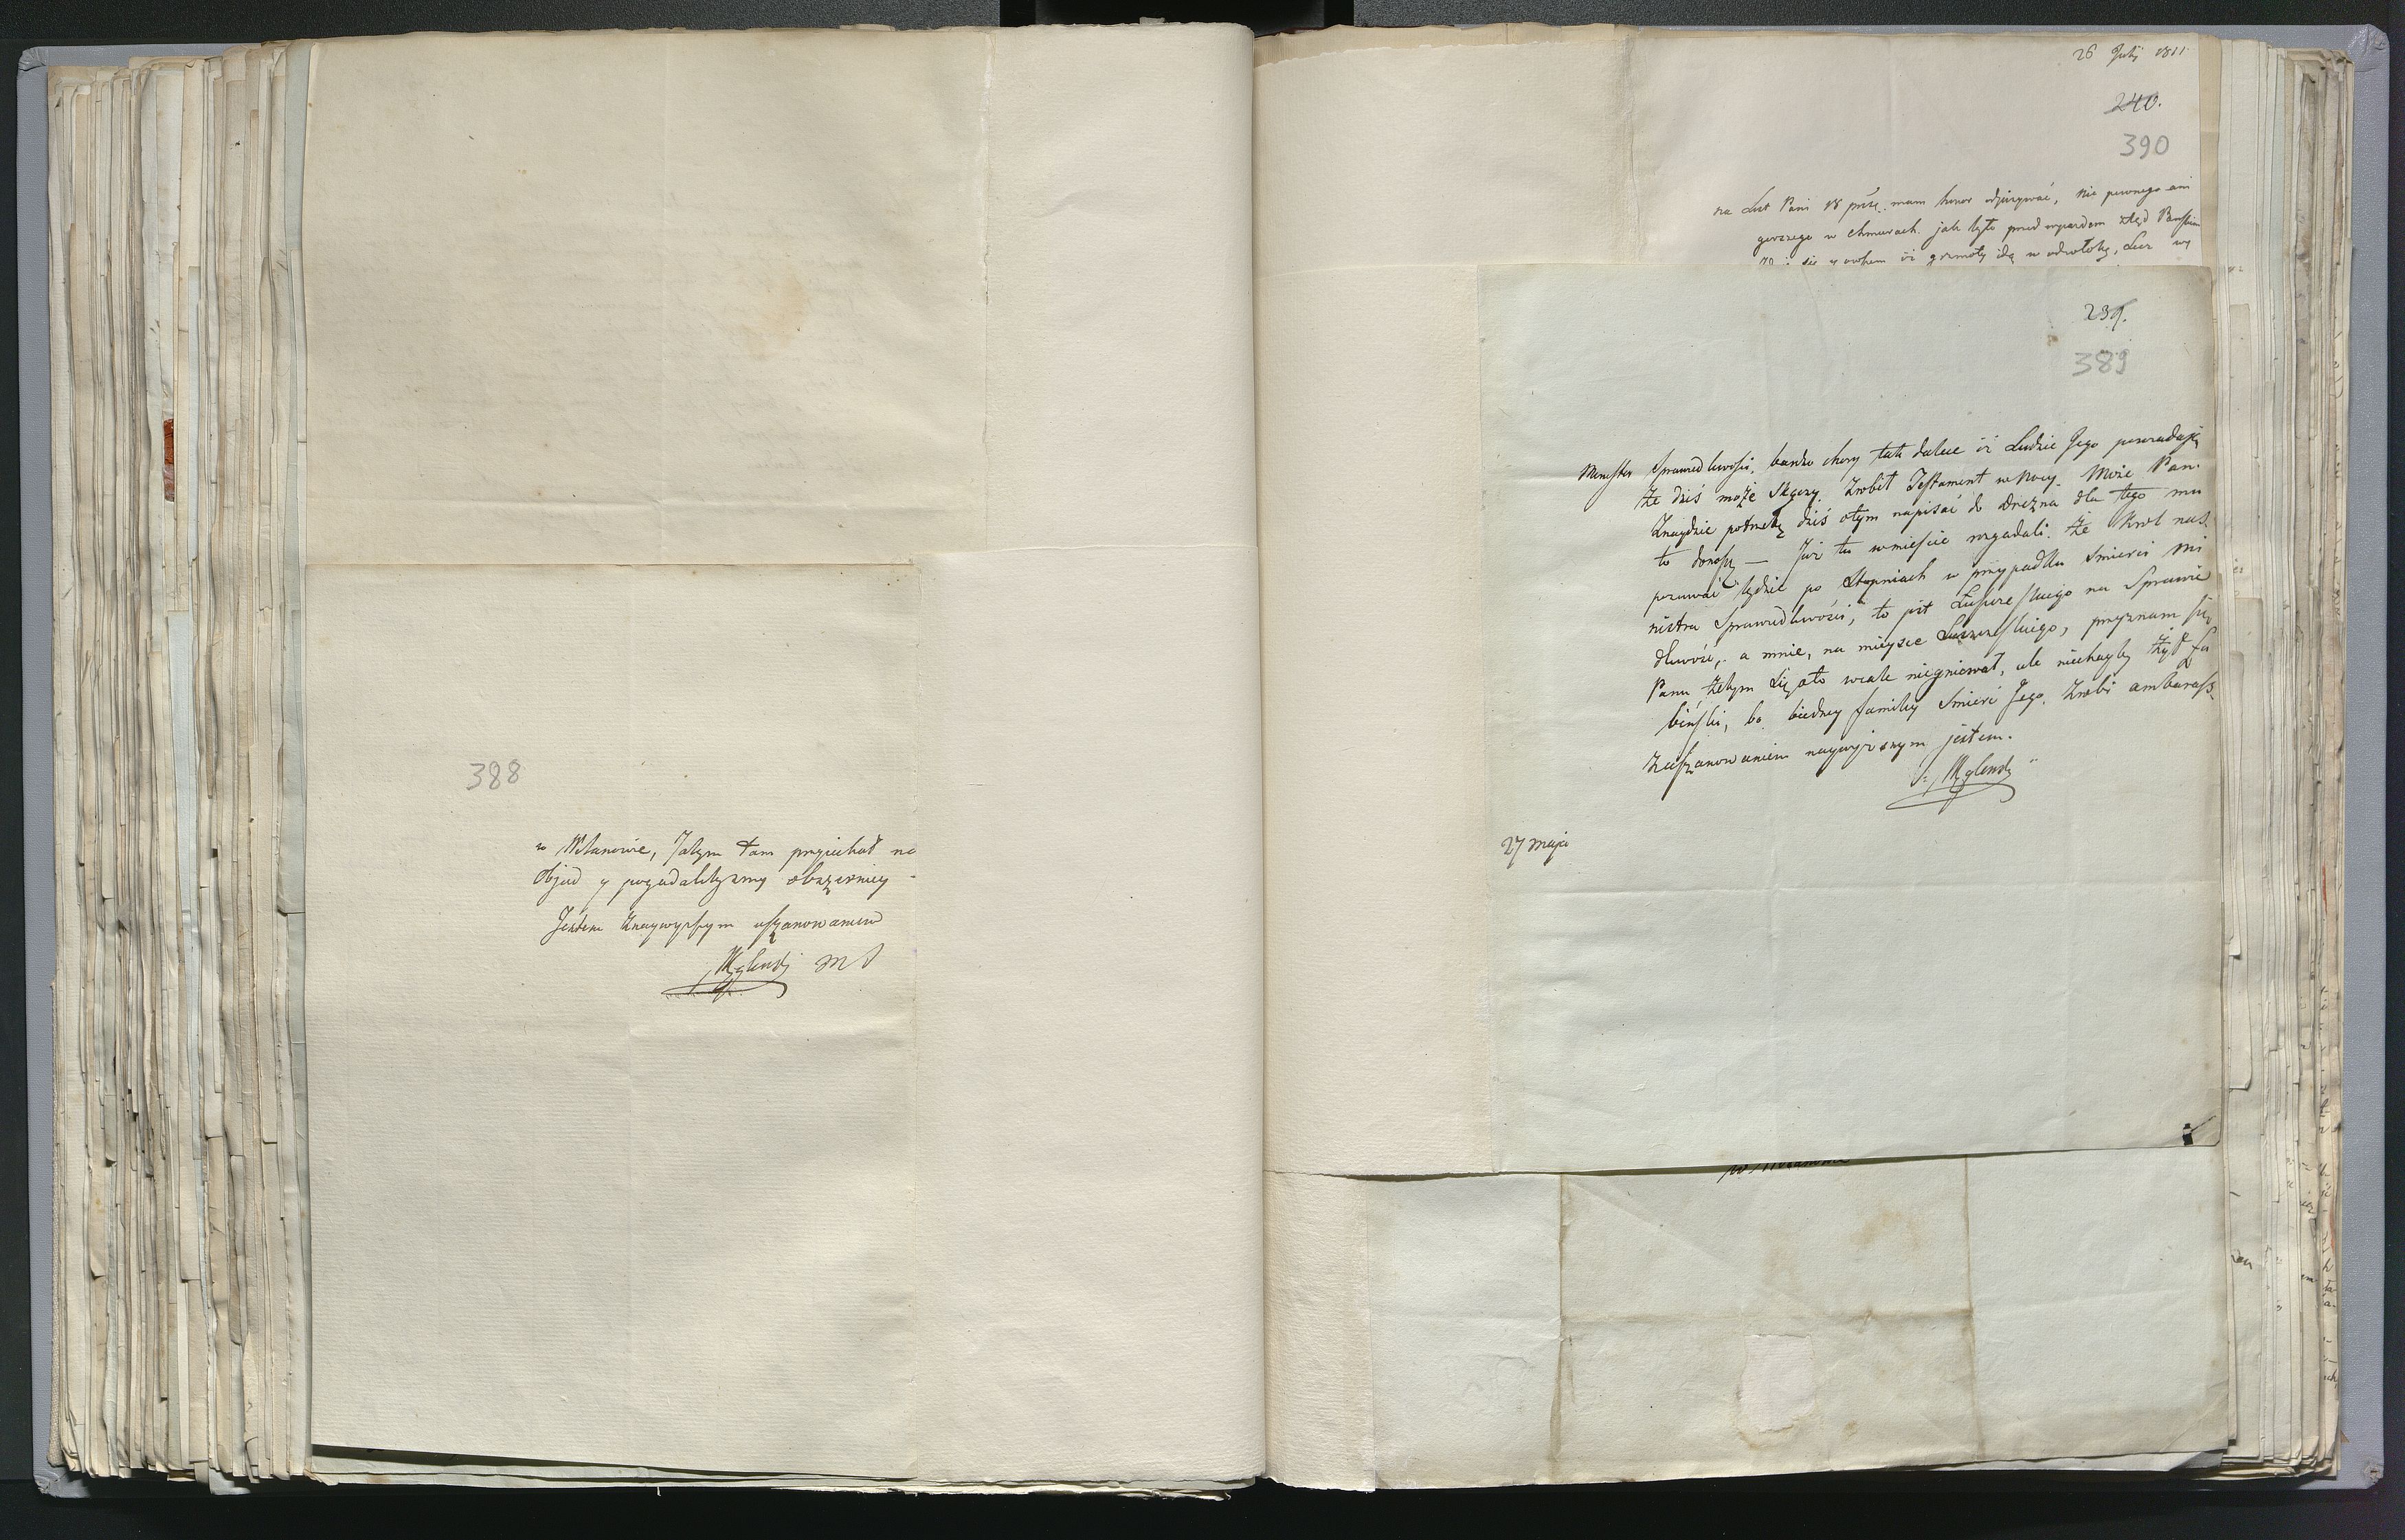 388
w Wilanowie, Jabym tam przyiechał na
Objad y pogadalibyzmy obszerniey -
Jestem Znaywyzszym uszanowaniem
Węglenski M S
26 Julij 1811
240.
390
na List Pani 18 pisze. mam honor odpisywać, nic pewnego ani
gorszego w chmurach. jak było przed wyjazdem ztąd Panskim
się iż gramoty idą w odwłokę, Lecz wy
239.
389
Minister Sprawiedliwości, bardzo chory tak dalece iż Ludzie Jego powiadają
że dziś może Skączy. Zrobił Testament w Nocy. Może Pan.
Znaydzie potrzebę dziś otym napisać do Drezna dla tego mu
to donoszę — Już tu w mieście nagadali. że Krol nas.
posuwać będzie po Stopniach w przypadku Smierci Mi
nistra Sprawiedliwości, to jest Łuszczeskiego na Sprawie
dliwość, a mnie, na mieysce Łuszczeskiego, przyznam się
Panu żebym Się oto wcale niegniewał, ale niechayby żył Łu
bieński, bo biedney familiy Smierć Jego. Zrobi ambarass.
Zuszanowaniem naywyższym jestem.
Węglenski
27 Maja